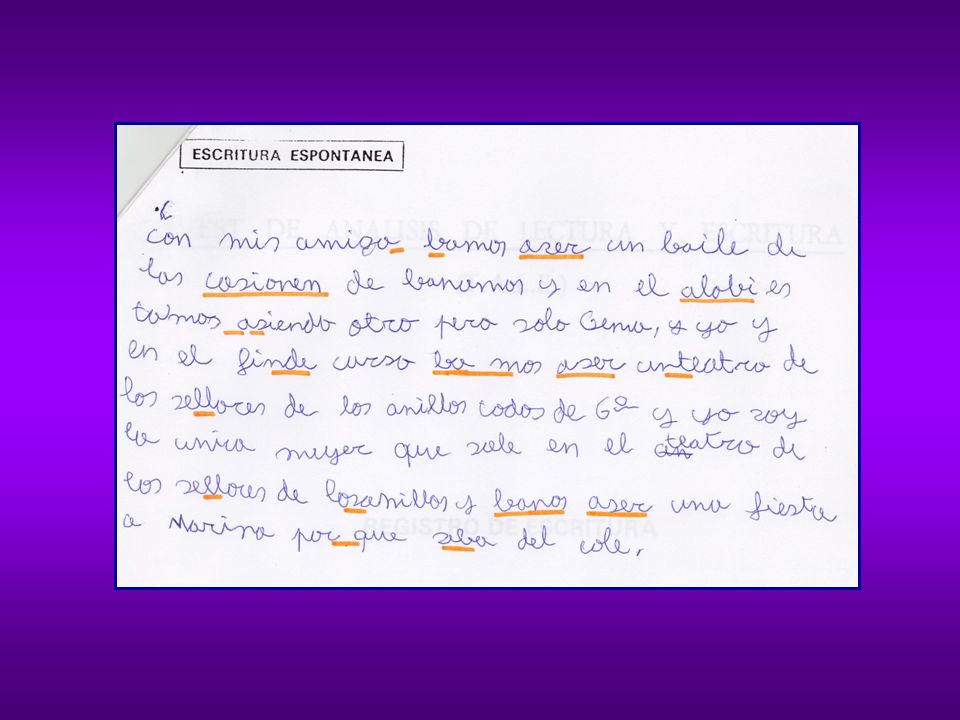 ESCRITURA ESPONTANEA
TEST DE ANALISIS DE LECTURA Y ESCRITURA
Con mis amiga bamos aser un baile de
las casionen de banamos y en el alobi es
tamos asiendo otro pero solo Gema, y yo y
en el finde curso ba mos aser unteatro de
los sellores de los anillos todos de 6º y yo soy
la unica muyer que sale en el teatro de
los sellores de losanillos y banos aser una fiesta
a Marina por que seba del cole.
REGISTRO DE ESCRITURA